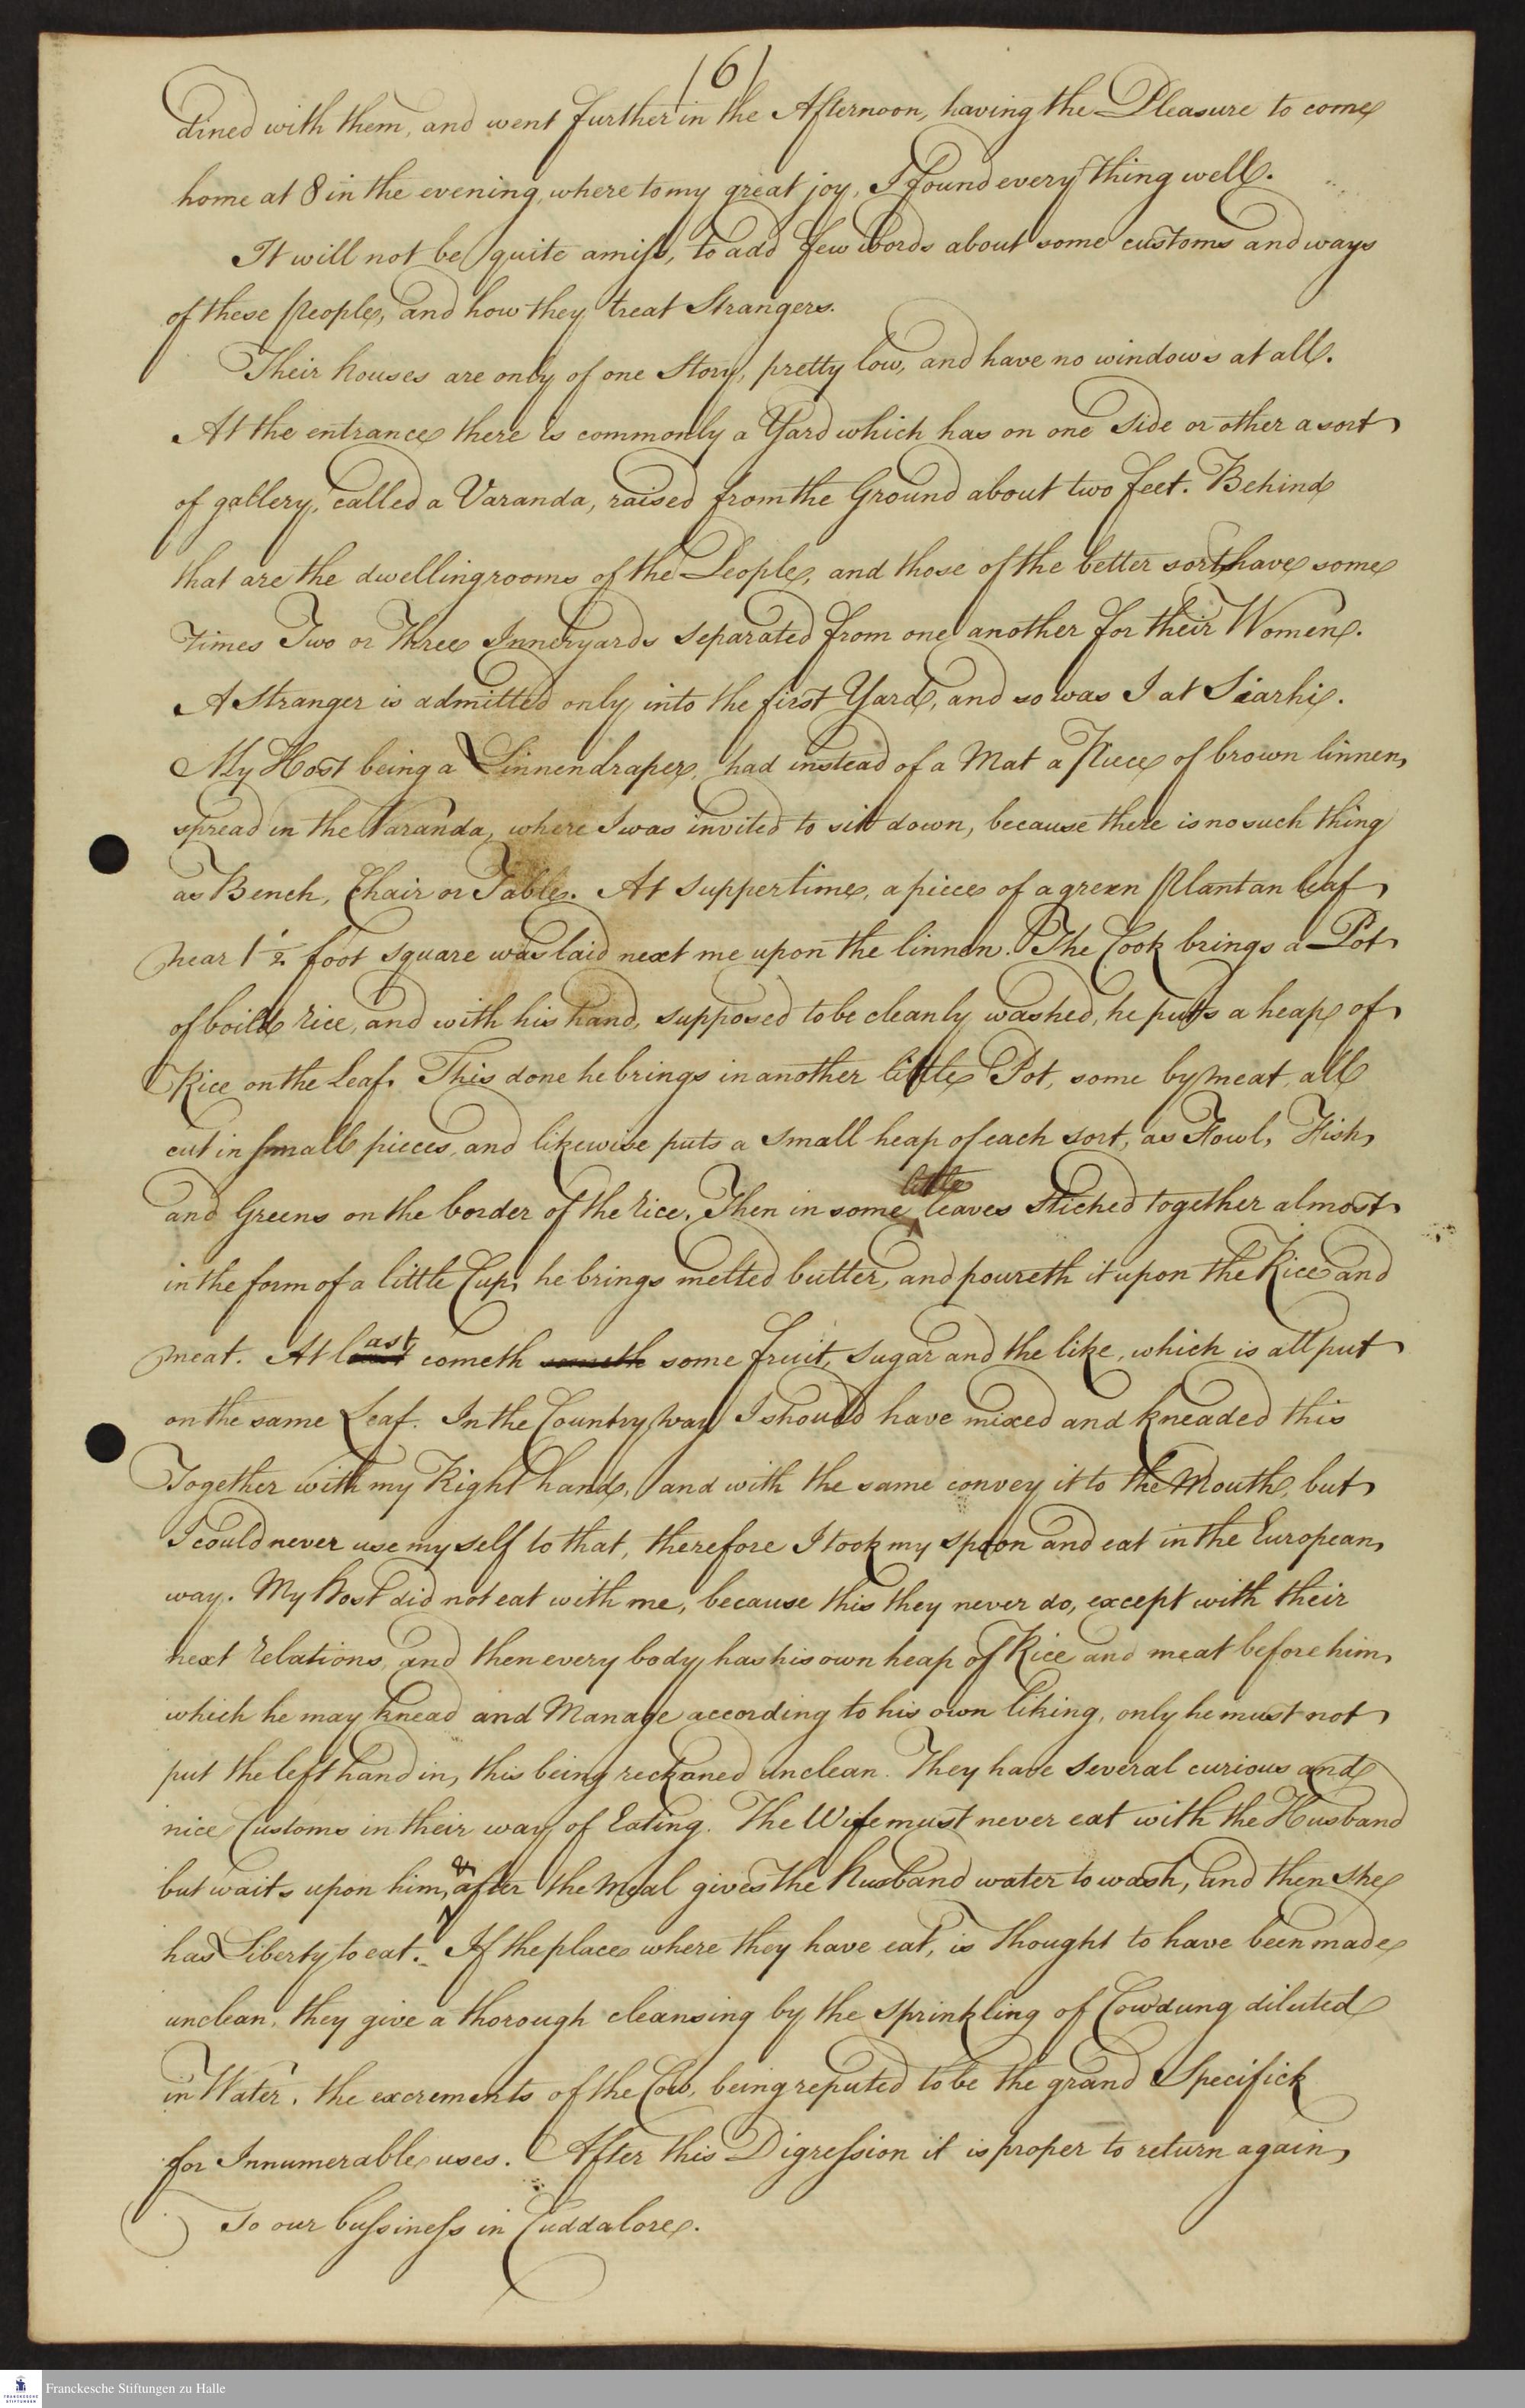 /6/
dined with them, and went further in the Afternoon, having the Pleasure to come
home at 8 in the evening, where to my great joy, I found every thing well.
It will not be quite amiſs, to add few words about some customs and ways
of these People, and how they treat Strangers.
Their houses are only of one Story, pretty low, and have no windows at all.
At the entrance there is commonly a Yard which has on one Side or other a sort
of gallery, called a Varanda, raised from the Ground about two feet. Behind
that are the dwellingrooms of the People, and those of the better sort have some
times Two or Three Inneryards separated from one another for their Women.
A Stranger is admitted only into the first Yard, and so was I at Siarhi.
My Host being a Linnendraper, had instead of a Mat a Piece of brown linnen,
spread in the Varanda, where I was invited to sit down, because there is no such thing
as Bench, Chair or Table. At Suppertime, a piece of a green Plantan leaf,
near 1 1/2 foot square was laid next me upon the linnen. The Cook brings a Pot
of boild rice, and with his hand, supposed to be cleanly washed, he putts a heap of
Rice on the Leaf. This done he brings in another little Pot, some bymeat, all
cut in small pieces, and likewise puts a small heap of each sort, as Fowl, Fish,
and Greens on the border of the rice. Then in some little leaves stiched together almost
in the form of a little Cup, he brings melted butter, and poureth it upon the Rice and
meat. At last cometh some fruit, sugar and the like, which is all put
on the same Leaf. In the Country way I should have mixed and kneaded this
Together with my Right hand, and with the same convey it to the Mouth, but
I could never use my self to that, therefore I took my spoon and eat in the European
way. My host did not eat with me, because this they never do, except with their
next relations, and then every body has his own heap of Rice and meat before him,
which he may knead and Manage according to his own liking, only he must not
put the left hand in, this being reckoned unclean. They have several curious and
nice Customs in their way of Eating. The Wife must never eat with the Husband
but waits upon him, & after the Meal gives the husband water to wash, and then she
has Liberty to eat. If the place where they have eat, is thought to have been made
unclean, they give a thorough cleansing by the sprinkling of Cowdung diluted
in Water, the excrements of the Cow, being reputed to be the grand Specifick
for Innumerable uses. After this Digreſsion it is proper to return again
To our buſsineſs in Cuddalore.
Franckesche Stiftungen zu Halle
FRANCKESCHE STIFTUNGEN